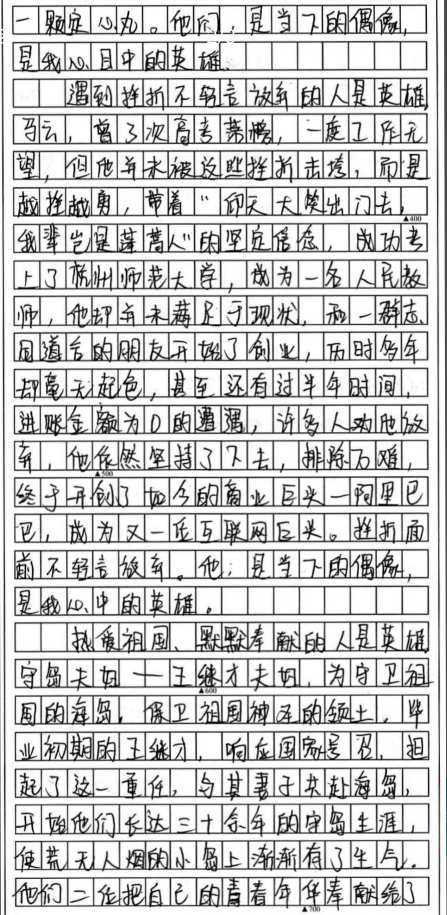 一颗定心丸。他们,是当下的偶像,
是我心目中的英雄。
遇到挫折不轻言放弃的人是英雄,
马云,曾3次高考落榜,一度工作无
望,但他并未被这些挫折击垮,而是
越挫越勇,带着“仰天大笑出门去,
▲400
我辈岂是蓬蒿人”的坚定信念,成功考
上了杭州师范大学,成为一名人民教
师,他却并未满足于现状,和一群志
同道合的朋友开始了创业,历时多年
却毫无起色,甚至还有过半年时间,
进账金额为0的遭遇,许多人劝他放
弃,他依然坚持了下去,排除万难,
▲500
终于开创了如今的商业巨头一阿里巴
巴,成为又一位互联网巨头。挫折面
前不轻言放弃。他,是当下的偶像,
是我心中的英雄。
热爱祖国、默默奉献的人是英雄
守岛夫妇一王继才夫妇,为守卫祖
▲600
国的海岛,保卫祖国神圣的领土,毕
业初期的王继才,响应国家号召,担
起了这一重任,与其妻子共赴海岛,
开始他们长达三十余年的守岛生涯,
使荒无人烟的小岛上渐渐有了生气.
他们二位把自己的青春年华奉献给了
▲700